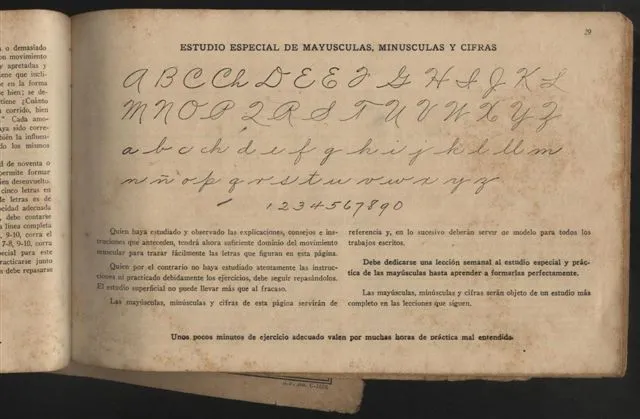 o demasiado
on movimiento
y apretadas y
ene que incli-
e en la forma
e bien; se de-
tiene ¿Cuánto
corrido, bien
" Cada amo-
aya sido corre-
bién la influen-
do los mismos
d de noventa o
permite formar
ien desenvuelto.
cinco letras en
de letras es de
ocidad adecuada
, debe contarse
a línea completa
, 9-10, corra el
7-8, 9-10, corra
pecial para este
racticarse junto
s debe repasarlas
29
ESTUDIO ESPECIAL DE MAYUSCULAS, MINUSCULAS Y CIFRAS
A B C Ch D E E F G H I J K L
M N O P Q R S T U V W X Y Z
a b c ch d e f g h i j k l ll m
n ñ o p q r s t u v w x y z
1 2 3 4 5 6 7 8 9 0
Quien haya estudiado y observado las explicaciones, consejos e ins-
trucciones que anteceden, tendrá ahora suficiente dominio del movimiento
muscular para trazar fácilmente las letras que figuran en esta página.
Quien por el contrario no haya estudiado atentamente las instruc-
ciones ni practicado debidamente los ejercicios, debe seguir repasándolos.
El estudio superficial no puede llevar más que al fracaso.
Las mayúsculas, minúsculas y cifras de esta página servirán de
referencia y, en lo sucesivo deberán servir de modelo para todos los
trabajos escritos.
Debe dedicarse una lección semanal al estudio especial y prác-
tica de las mayúsculas hasta aprender a formarlas perfectamente.
Las mayúsculas, minúsculas y cifras serán objeto de un estudio más
completo en las lecciones que siguen.
Unos pocos minutos de ejercicio adecuado valen por muchas horas de práctica mal entendida.